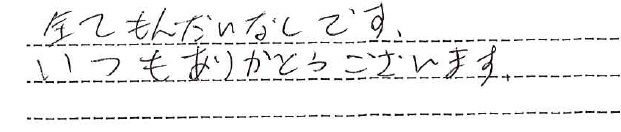 全てもんだいなしです、
いつもありがとうございます。